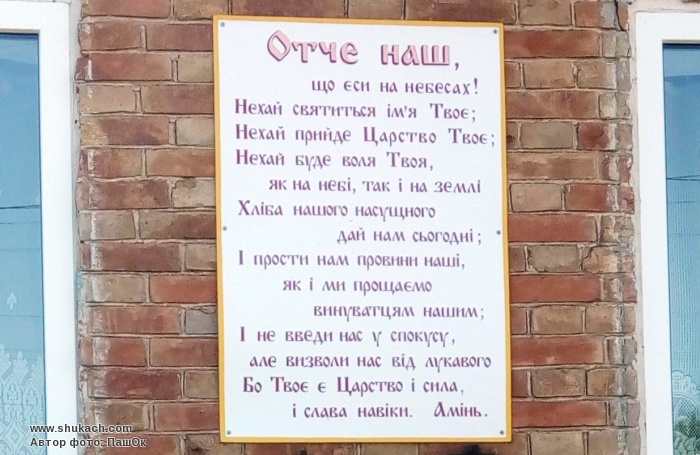 Отче наш,
що єси на небесах!
Нехай святиться ім'я Твоє;
Нехай прийде Царство Твоє;
Нехай буде воля Твоя,
як на небі, так і на землі
Хліба нашого насущного
дай нам сьогодні;
І прости нам провини наші,
як і ми прощаємо
винуватцям нашим;
І не введи нас у спокусу,
але визволи нас від лукавого
Бо Твоє є Царство і сила,
і слава навіки. Амінь.
www.shukach.com
Автор фото: ПашОк